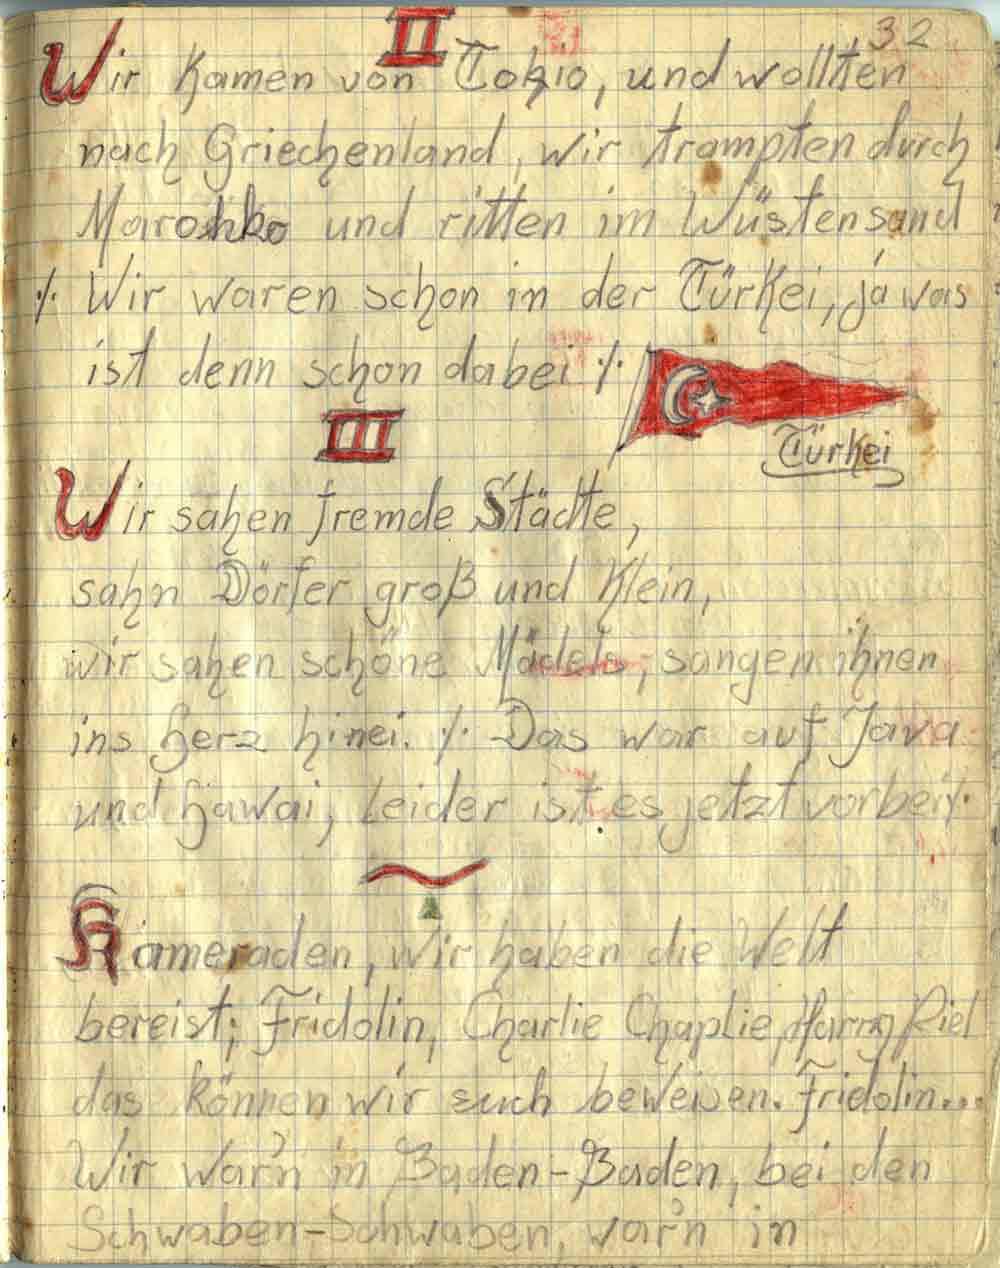 32
II
Wir kamen von Tokio, und wollten
nach Griechenland, wir trampten durch
Marokko und ritten im Wüstensand
·/· Wir waren schon in der Türkei, ja was
ist denn schon dabei ·/·
Türkei
III
Wir sahen fremde Städte,
sahn Dörfer groß und klein,
wir sahen schöne Mädels, sangen ihnen
ins Herz hinei. ·/· Das war auf Java
und Hawai, Leider ist es jetzt vorbei ·/·
Kameraden, wir haben die Welt
bereist; Fridolin, Charlie Chaplie, Harry Piel
das können wir euch beweisen. Fridolin...
Wir war'n in Baden-Baden, bei den
Schwaben-Schwaben, war'n in